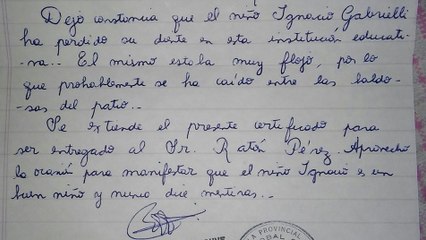 Dejo constancia que el niño Ignacio Gabrielli
ha perdido su diente en esta institución educati-
va.. El mismo estaba muy flojo, por lo
que probablemente se ha caído entre las baldo-
sas del patio..
Se extiende el presente certificado para
ser entregado al Sr. Ratón Pérez. Aprovecho
la ocasión para manifestar que el niño Ignacio es un
buen niño y nunca dice mentiras..
LA PROVINCIAL